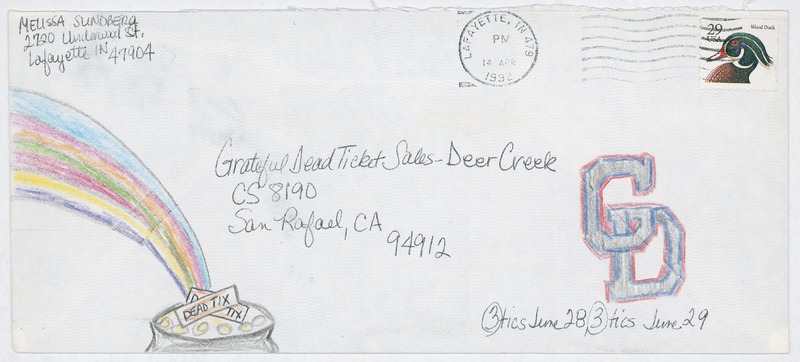 MELISSA SUNDBERG
2720 Underwood St.
Lafayette IN 47904
LAFAYETTE, IN 479
PM
14 APR
1992
29
USA
Wood Duck
Grateful Dead Ticket Sales - Deer Creek
CS 8190
San Rafael, CA
94912
GD
DEAD TIX
TIX
3 tics June 28, 3 tics June 29